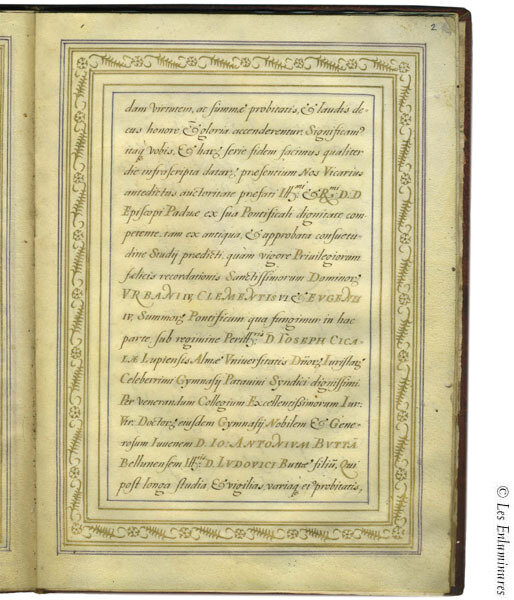 2
dam virtutem, ac summæ probitatis, & laudis de-
cus honore & gloria accenderentur. Significam⁹
itaq vobis, & harꝝ serie fidem facimus qualiter
die infrascripta datarꝝ præsentium Nos Vicarius
antedictus auctoritate præfati Ill.ᵐⁱ & R.ᵐⁱ D. D
Episcopi Paduæ ex sua Pontificali dignitate com-
petente, tam ex antiqua, & approbata consuetu-
dine Studij prædicti, quàm vigore Priuilegiorum
fælicis recordationis Sanctissimorum Dominorꝝ
VRBANI IV, CLEMENTIS VI & EVGENII
IV, Summorꝝ Pontificum qua fungimur in hac
parte sub regimine Perill.ʳⁱˢ D. IOSEPH CICA-
LÆ Lupiensis Almæ Vniuersitatis Dñorꝝ Iuristarꝝ
Celeberrimi Gymnasij Patauini Syndici dignissimi.
Per venerandum Collegium Excellentissimorum Iur:
Vtr. Doctorꝝ eiusdem Gymnasij Nobilem & Gene-
rosum Iuuenem D. IO: ANTONIVM BVTTĀ
Bellunensem Ill.ʳⁱˢ D. LVDOVICI Buttæ filiū, Qui
post longa studia & vigilias, variaq et probitatis,
© Les Enluminures